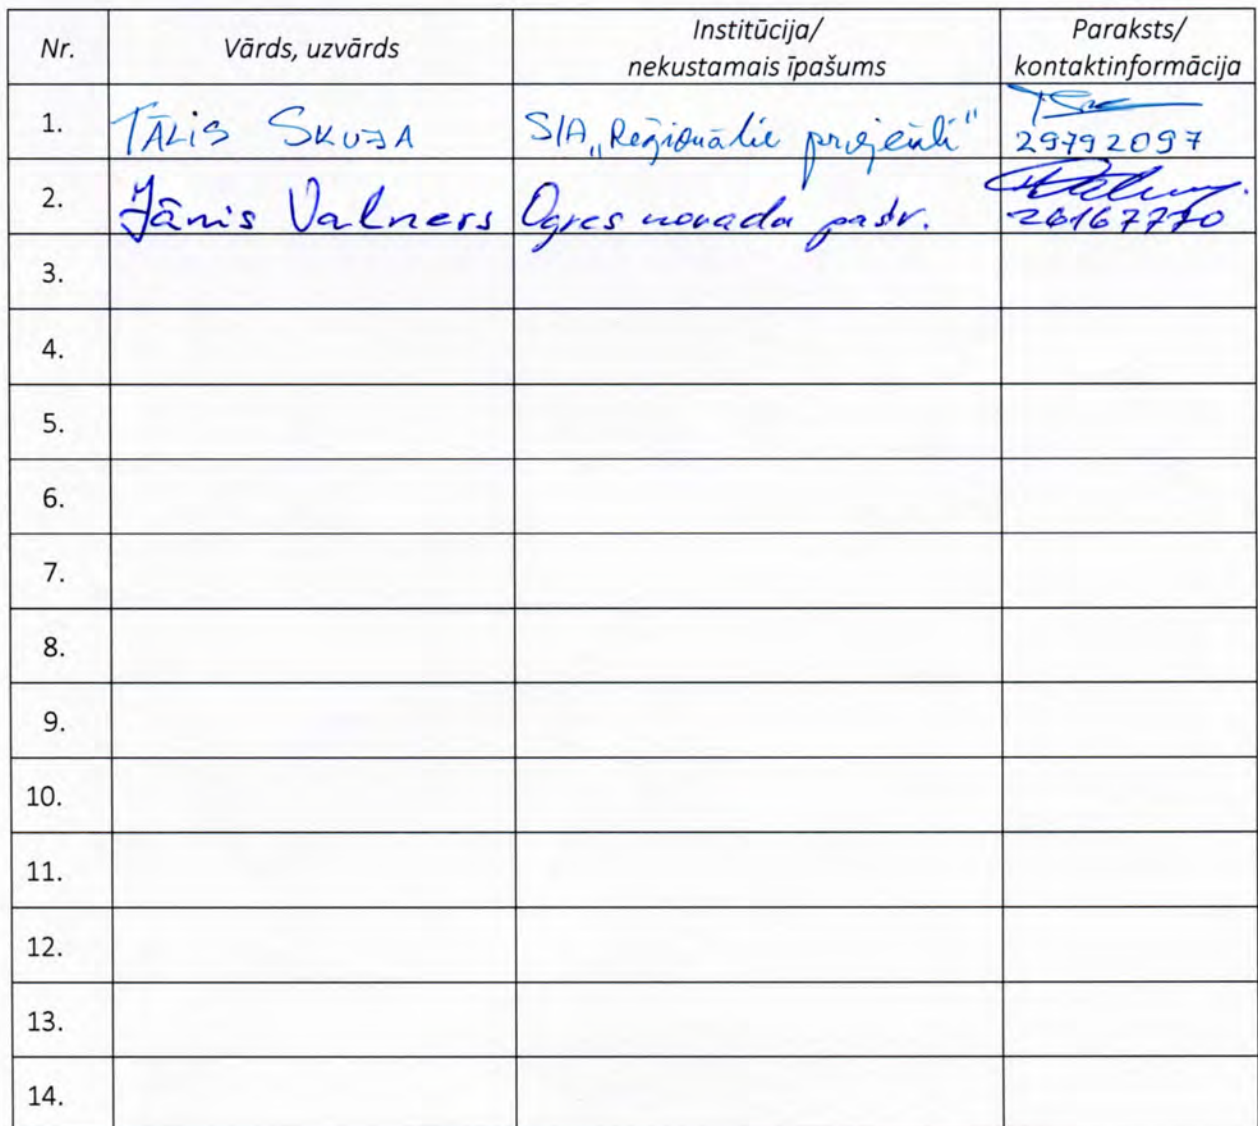 Nr. Vārds, uzvārds Institūcija/ Paraksts/
nekustamais īpašums kontaktinformācija
1. TĀLIS SKUJA SIA „Reģionālie projekti" 29792097
2. Jānis Valners Ogres novada pašv. 26167770
3.
4.
5.
6.
7.
8.
9.
10.
11.
12.
13.
14.